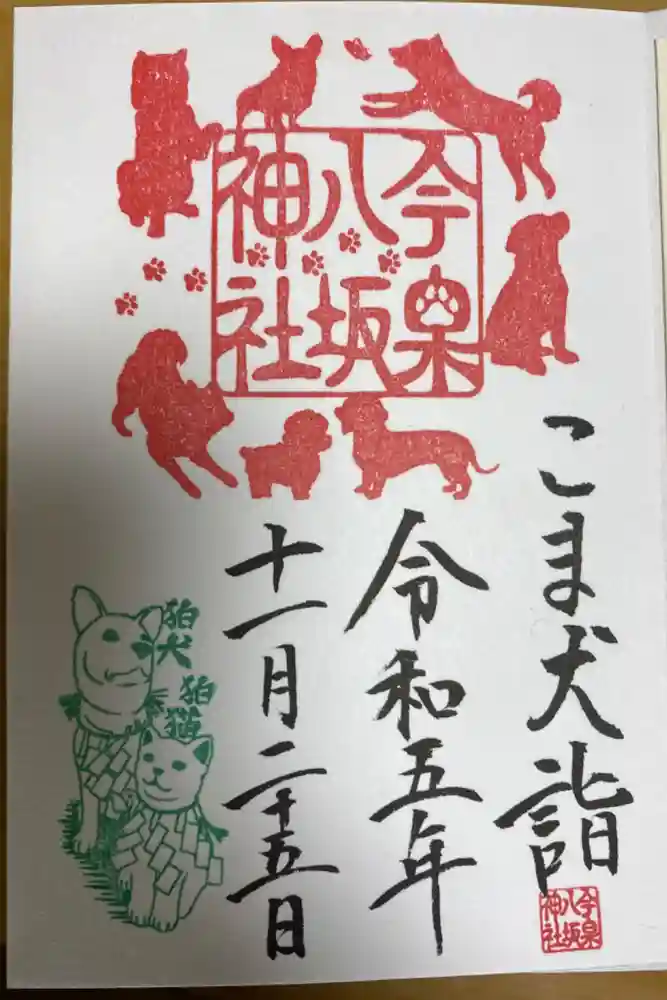 今泉
八坂
神社
こま犬詣
令和五年
十一月二十五日
狛犬
狛猫
今泉
八坂
神社